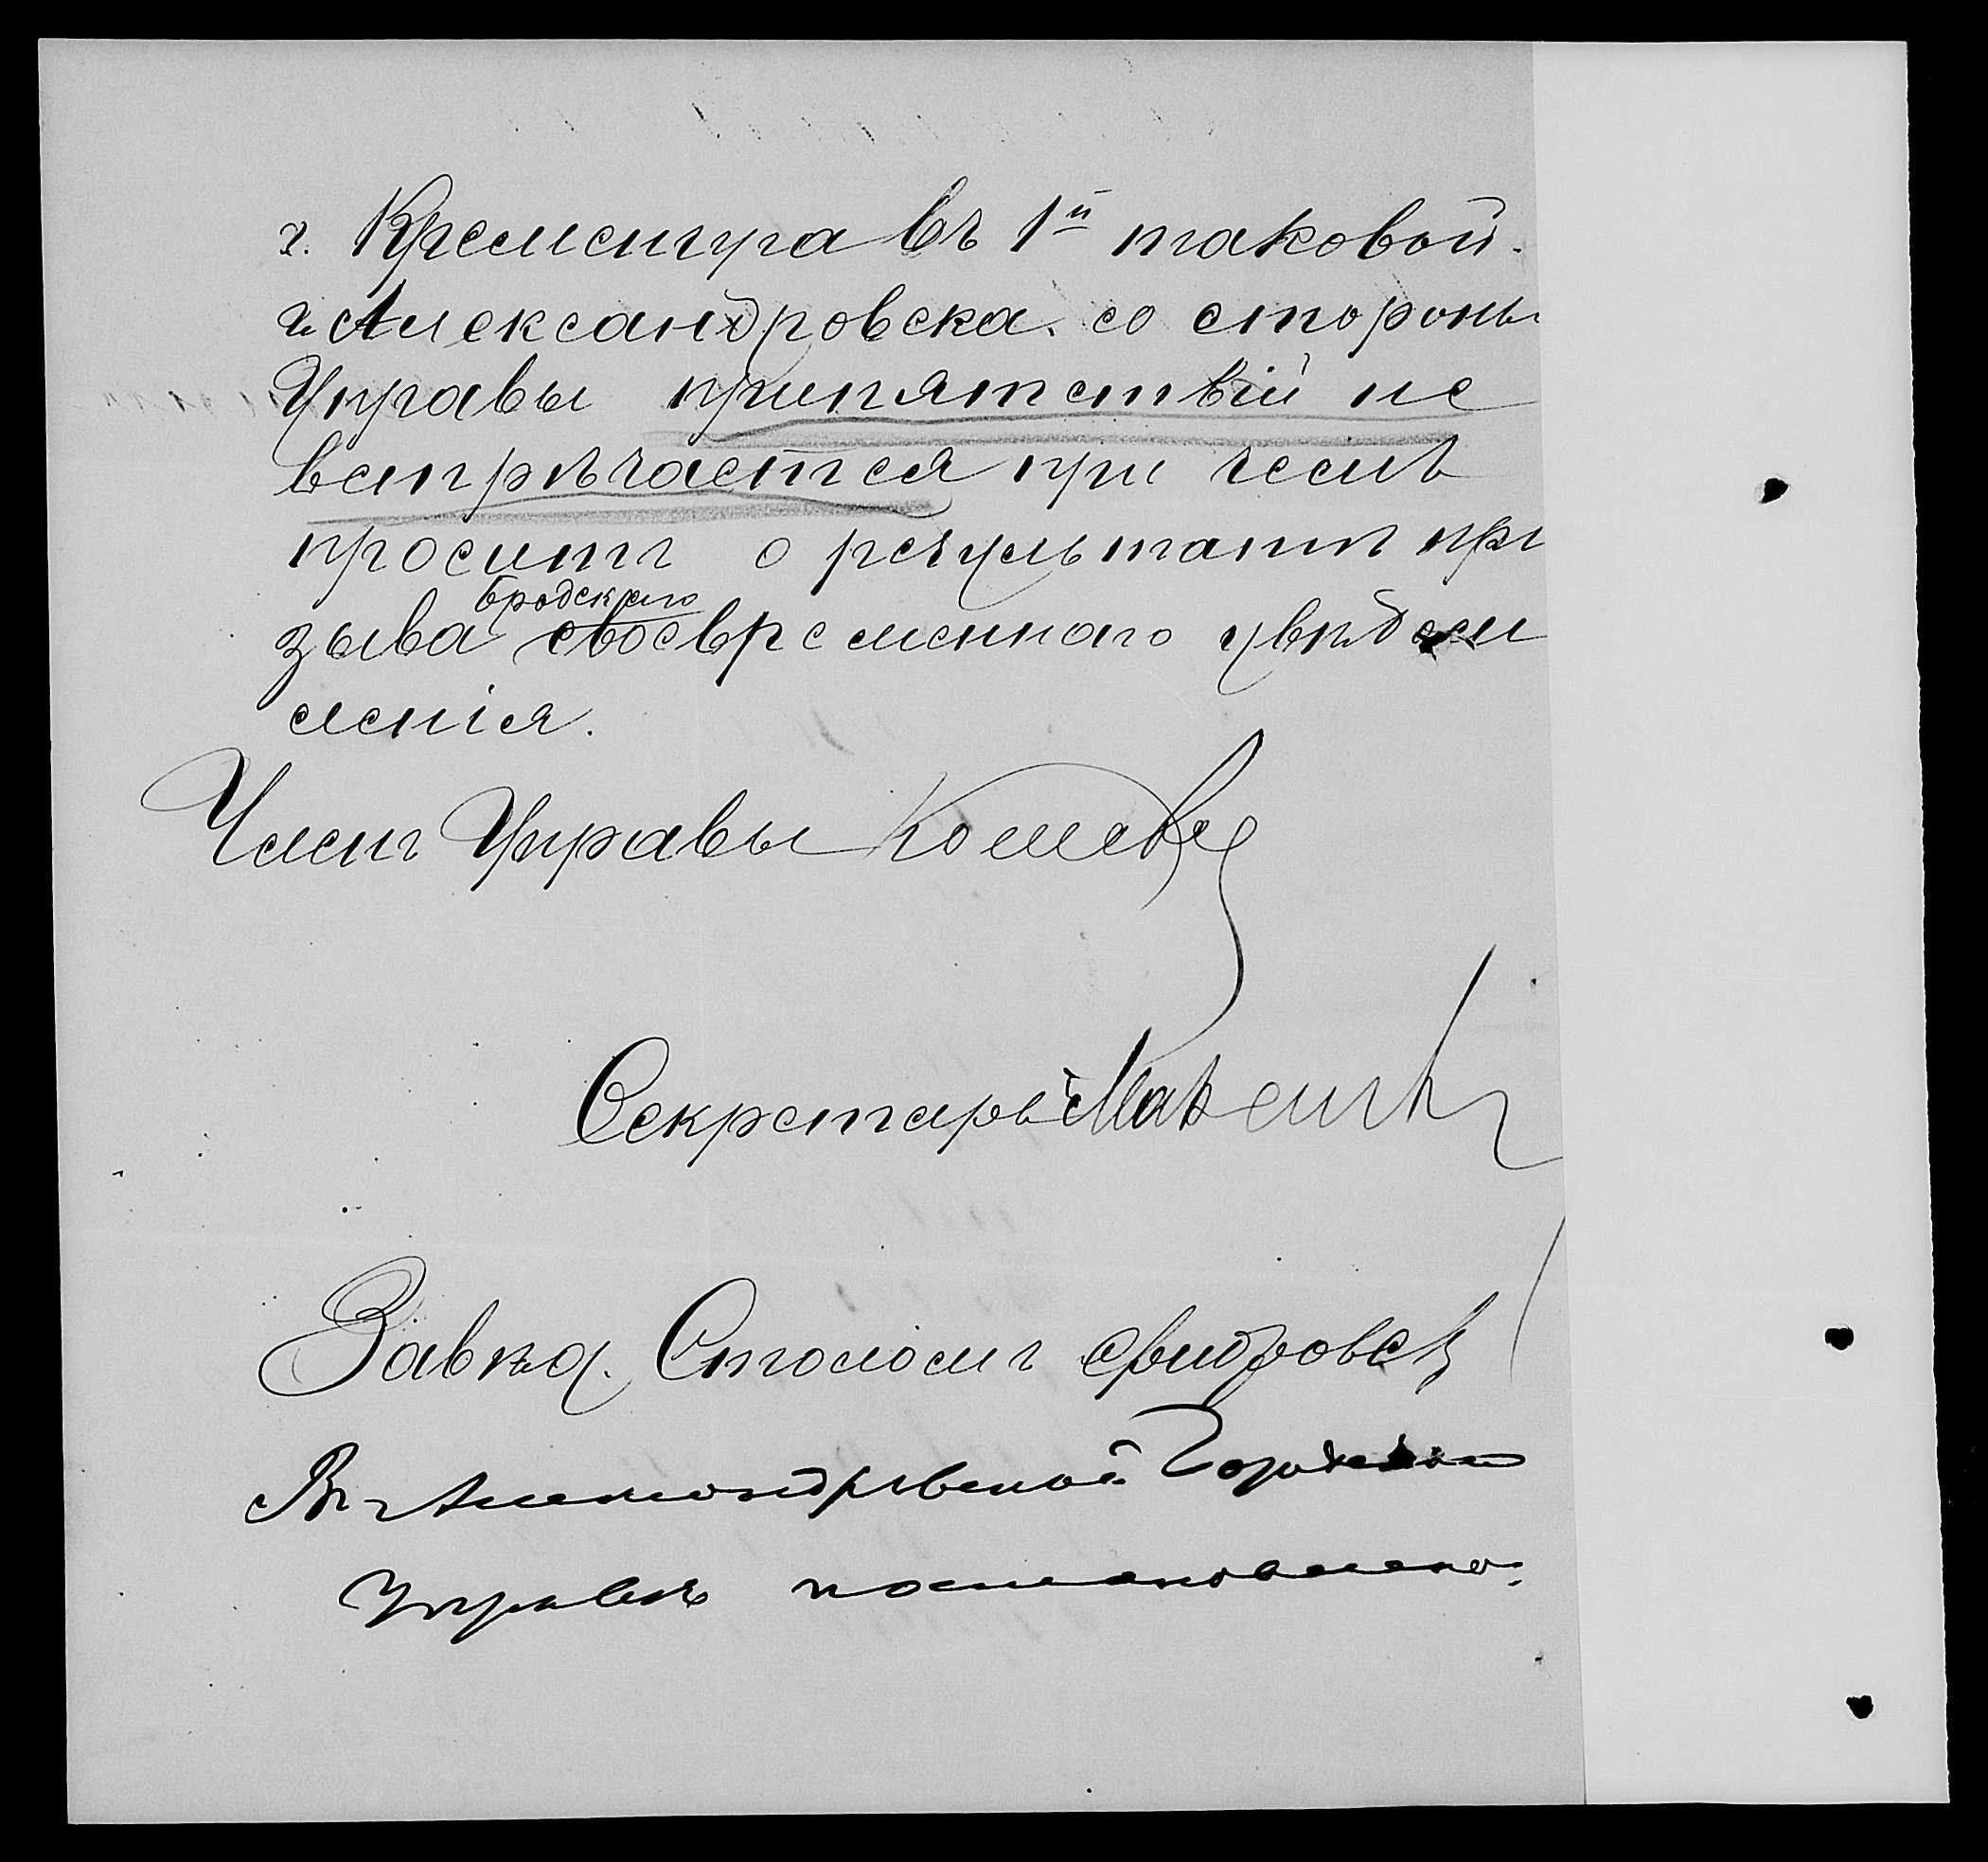 г. Кременчуга въ 1й таковой
г. Александровска со стороны
Управы припятствій не
встрѣчается при чемъ
проситъ о результатѣ при
Бродскаго
зыва своевременнаго увѣдом
ленія.
Членъ Управы
Секретарь
Завѣд. Столомъ
Въ Александровской Городской
Управѣ постановлено: